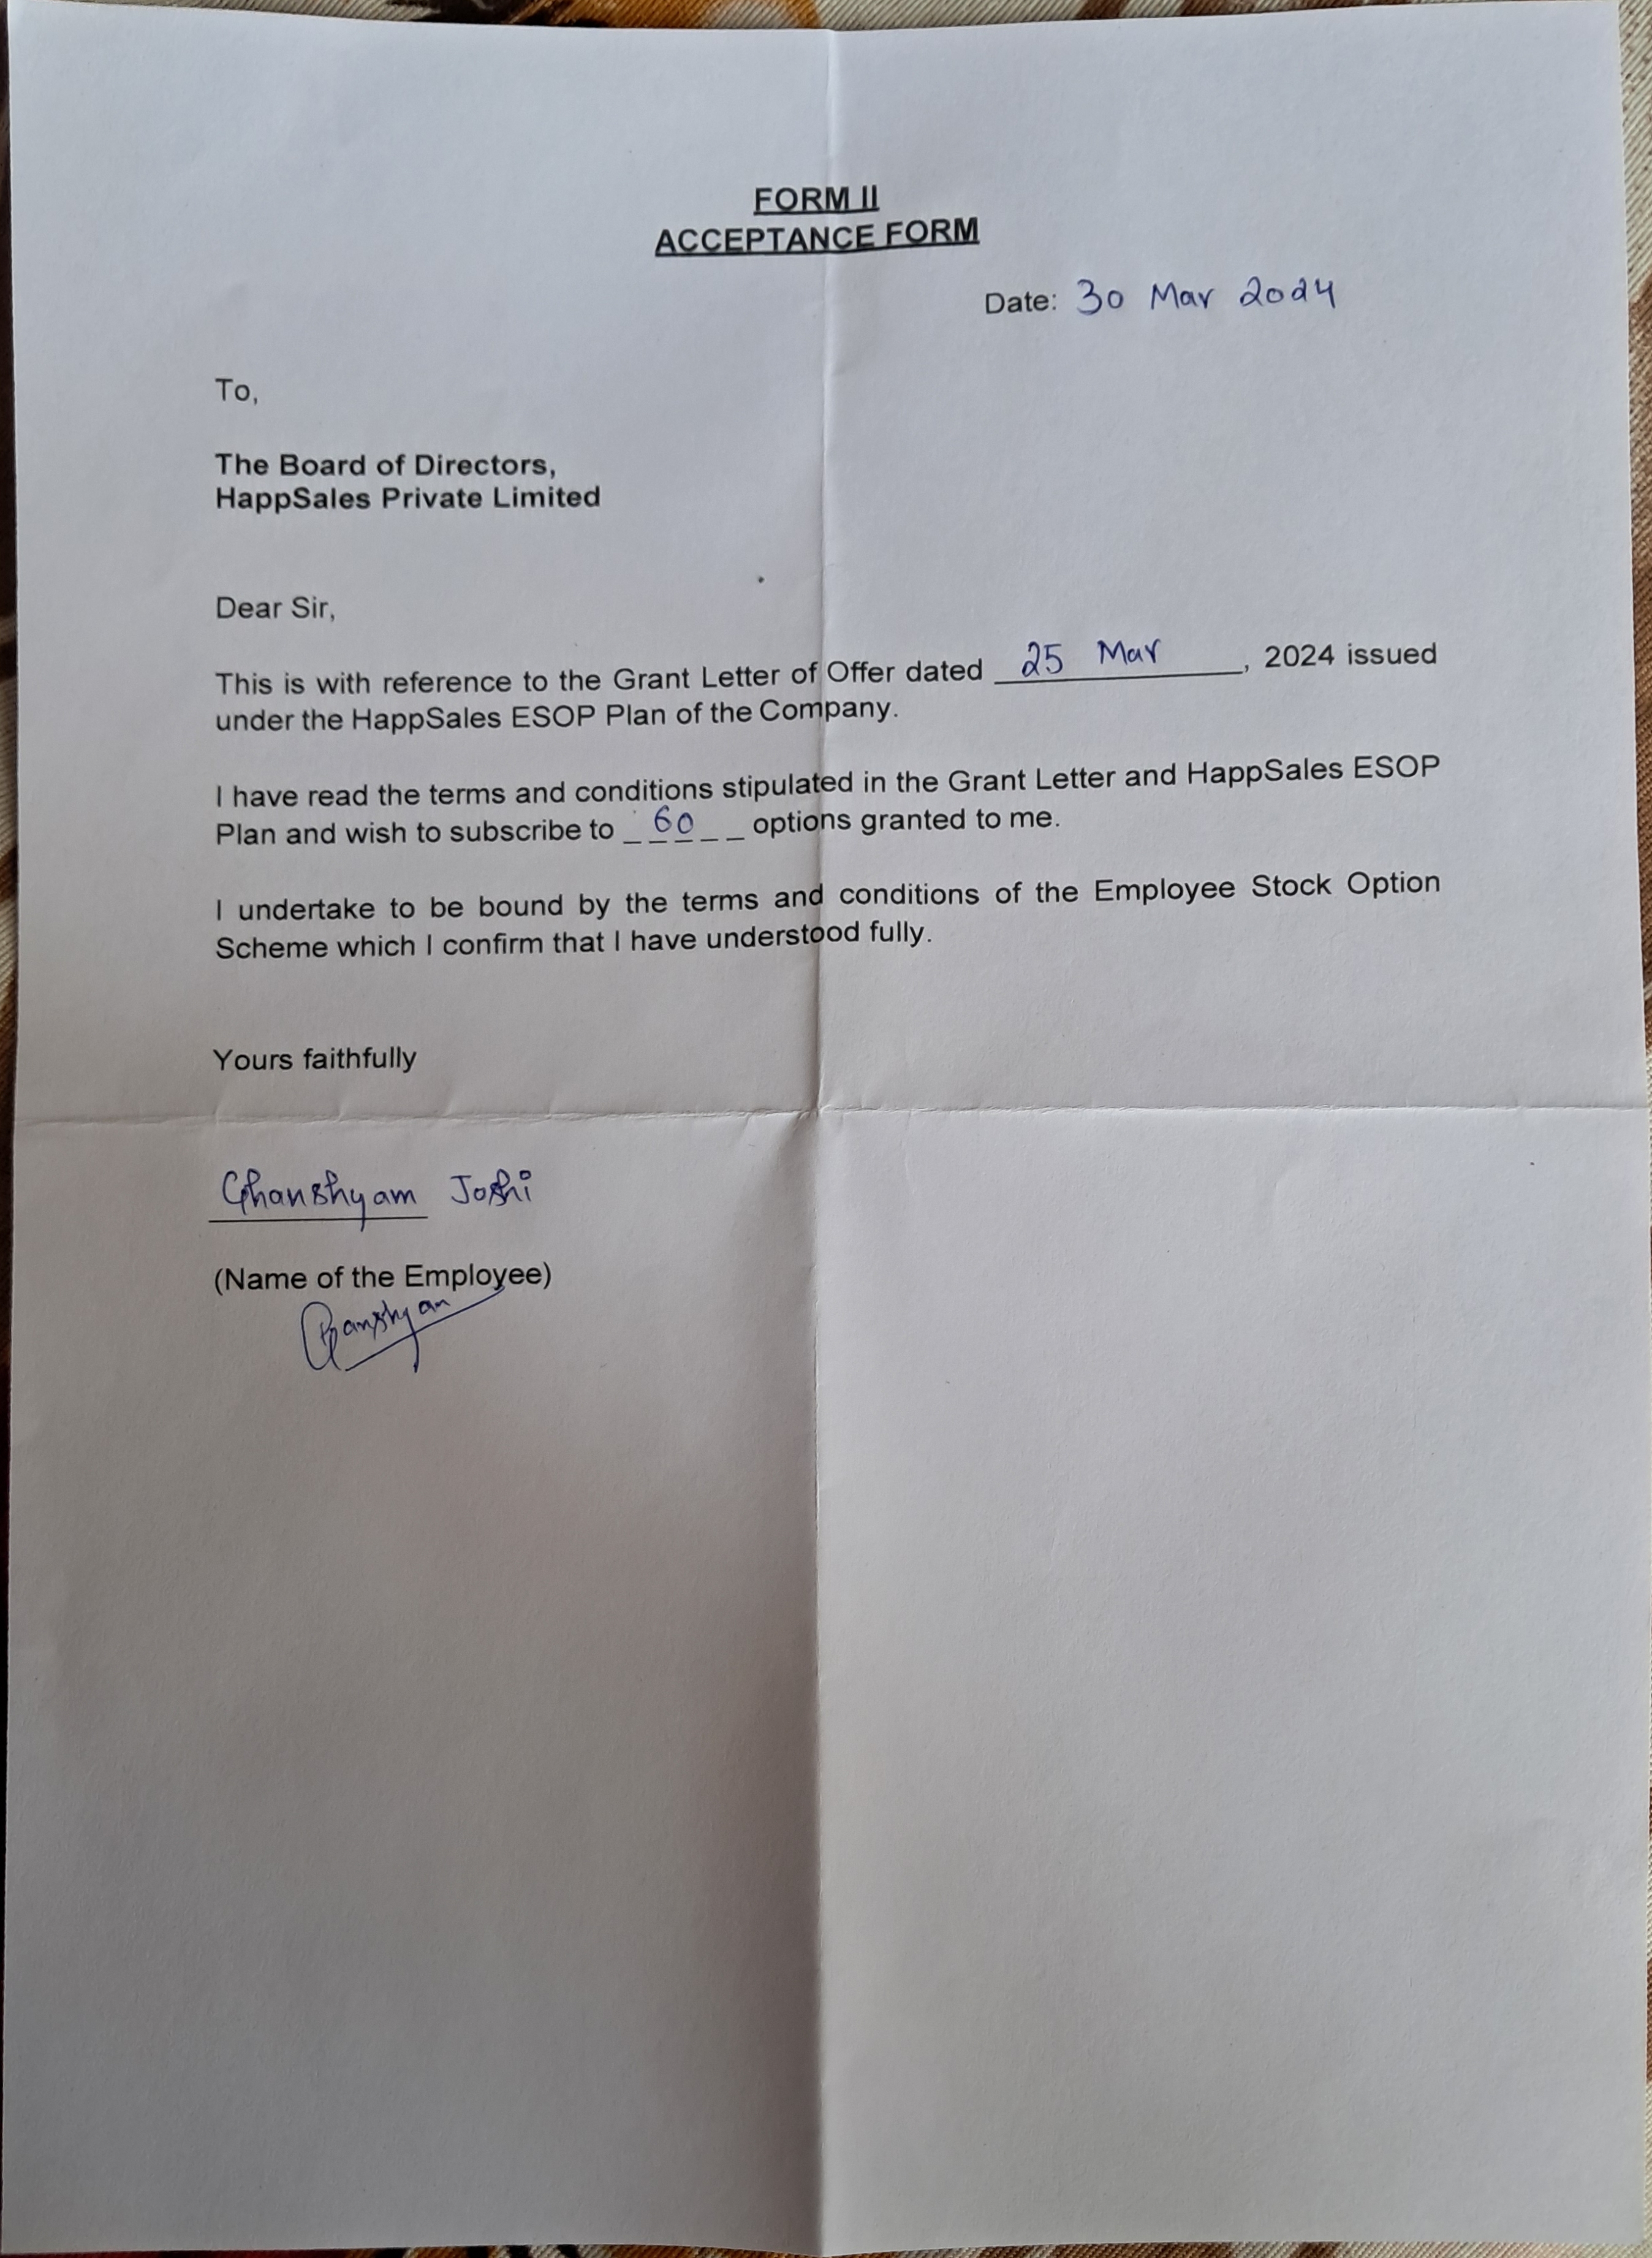 FORM II
ACCEPTANCE FORM
Date: 30 Mar 2024
To,
The Board of Directors,
HappSales Private Limited
Dear Sir,
This is with reference to the Grant Letter of Offer dated 25 Mar, 2024 issued
under the HappSales ESOP Plan of the Company.
I have read the terms and conditions stipulated in the Grant Letter and HappSales ESOP
Plan and wish to subscribe to 60 options granted to me.
I undertake to be bound by the terms and conditions of the Employee Stock Option
Scheme which I confirm that I have understood fully.
Yours faithfully
Ghanshyam Joshi
(Name of the Employee)